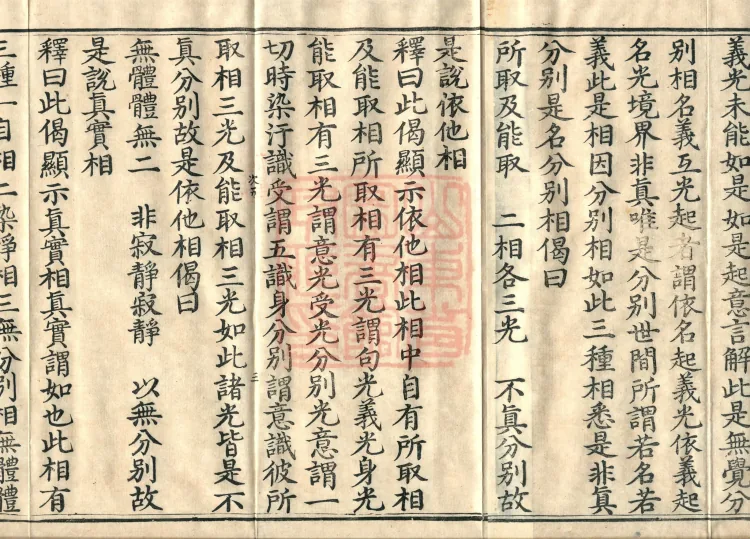 義光未能如是如是起意言解此是無覺分
別相名義互光起者謂依名起義光依義起
名光境界非真唯是分別世間所謂若名若
義此是相因分別相如此三種相悉是非真
分別是名分別相偈曰
所取及能取 二相各三光 不真分別故
是說依他相
釋曰此偈顯示依他相此相中自有所取相
及能取相所取相有三光謂句光義光身光
能取相有三光謂意光受光分別光意謂一
切時染汙識受謂五識身分別謂意識彼所
取相三光及能取相三光如此諸光皆是不
真分別故是依他相偈曰
無體體無二 非寂靜寂靜 以無分別故
是說真實相
釋曰此偈顯示真實相真實謂如也此相有
三種一自相二染淨相三無分別相無體體